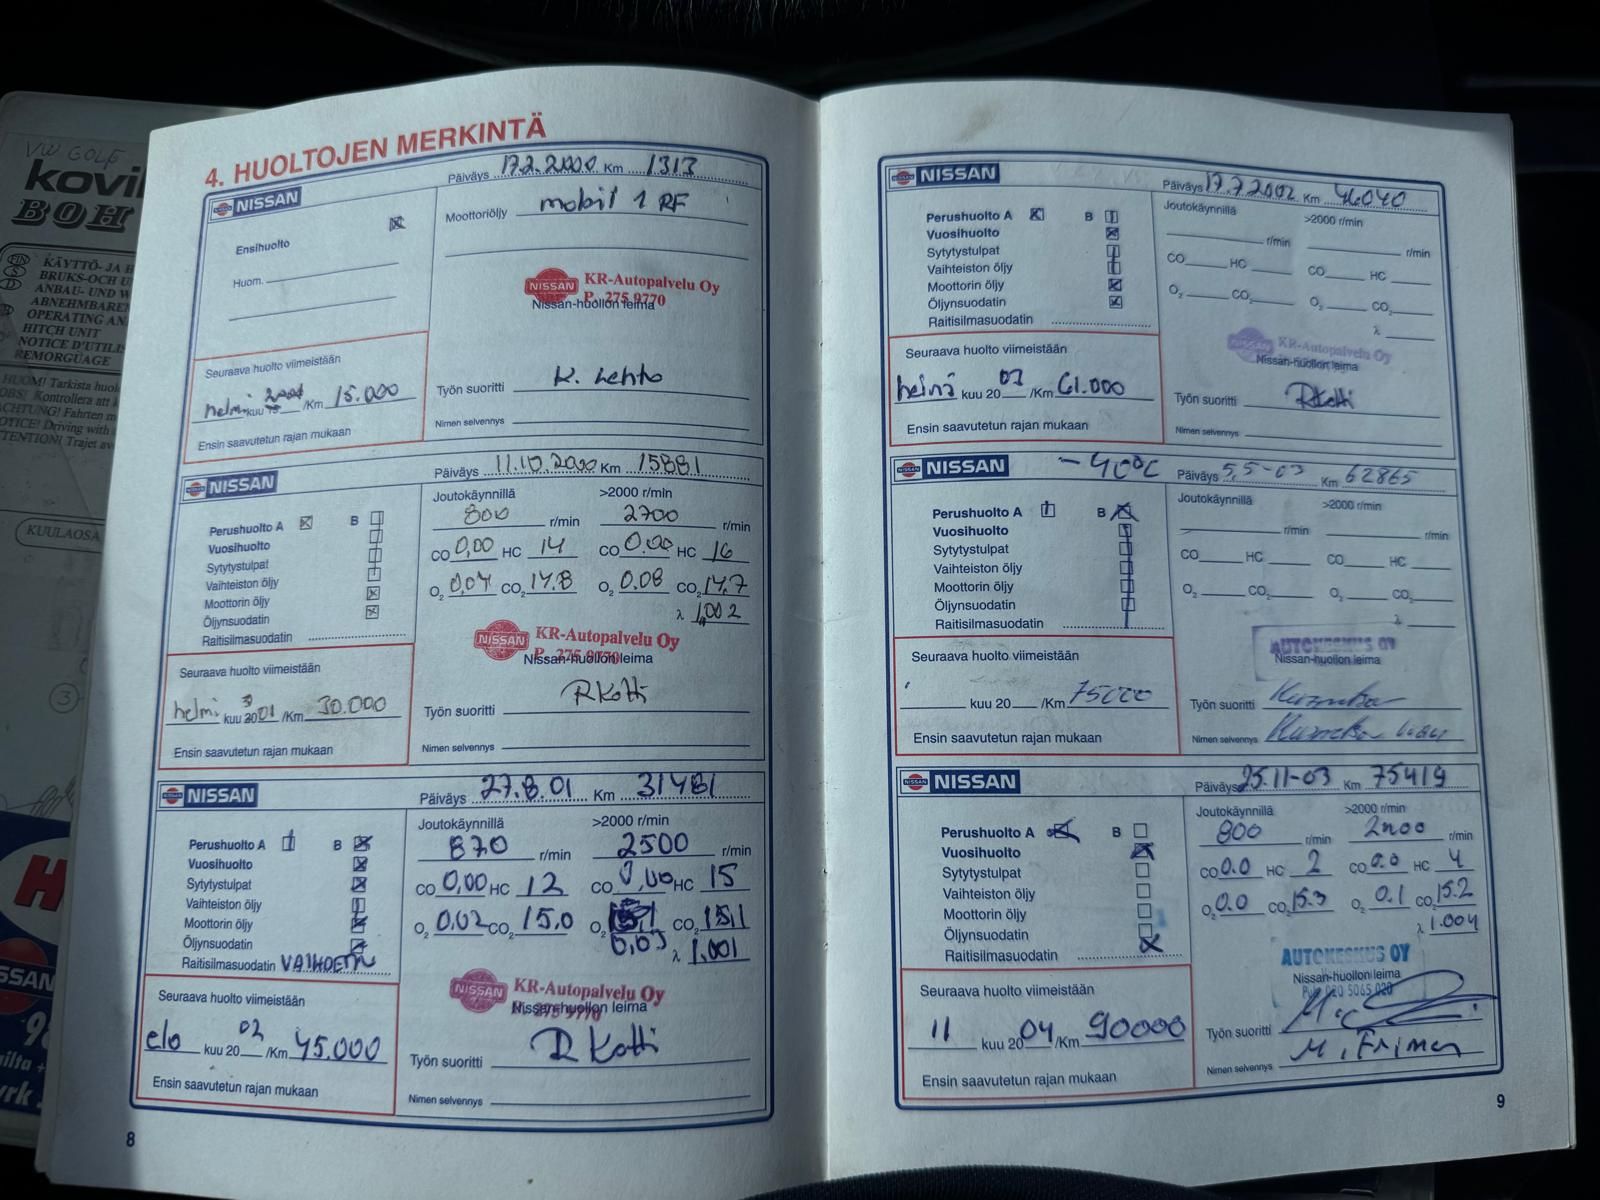 4. HUOLTOJEN MERKINTÄ
NISSAN
Päiväys 17.2.2000 Km 1313
Ensihuolto
Huom.
Moottoriöljy mobil 1 RF
NISSAN KR-Autopalvelu Oy
P. 275 9770
Nissan-huollon leima
Seuraava huolto viimeistään
helmi kuu 2001 /Km 15.000
Ensin saavutetun rajan mukaan
Työn suoritti K. Lehto
Nimen selvennys
NISSAN
Päiväys 11.10.2000 Km 15881
Perushuolto A B
Vuosihuolto
Sytytystulpat
Vaihteiston öljy
Moottorin öljy
Öljynsuodatin
Raitisilmasuodatin
Joutokäynnillä >2000 r/min
800 r/min 2700 r/min
CO 0,00 HC 14 CO 0.00 HC 16
O2 0,04 CO2 14.8 O2 0.08 CO2 14,7
λ 1,002
NISSAN KR-Autopalvelu Oy
P. 275 9770
Nissan-huollon leima
Seuraava huolto viimeistään
helmi kuu 2001 /Km 30.000
Ensin saavutetun rajan mukaan
Työn suoritti R Kotti
Nimen selvennys
NISSAN
Päiväys 27.8.01 Km 31481
Perushuolto A B
Vuosihuolto
Sytytystulpat
Vaihteiston öljy
Moottorin öljy
Öljynsuodatin
Raitisilmasuodatin VAIHDETTU
Joutokäynnillä >2000 r/min
870 r/min 2500 r/min
CO 0,00 HC 12 CO 0,00 HC 15
O2 0.02 CO2 15.0 O2 0,03 CO2 15,1
λ 1.001
NISSAN KR-Autopalvelu Oy
P. 275 9770
Nissan-huollon leima
Seuraava huolto viimeistään
elo kuu 2002 /Km 45.000
Ensin saavutetun rajan mukaan
Työn suoritti R Kotti
Nimen selvennys
8
NISSAN
Päiväys 17.7.2002 Km 46040
Perushuolto A B
Vuosihuolto
Sytytystulpat
Vaihteiston öljy
Moottorin öljy
Öljynsuodatin
Raitisilmasuodatin
Joutokäynnillä >2000 r/min
r/min r/min
CO HC CO HC
O2 CO2 O2 CO2
λ
NISSAN KR-Autopalvelu Oy
Nissan-huollon leima
Seuraava huolto viimeistään
heinä kuu 2003 /Km 61.000
Ensin saavutetun rajan mukaan
Työn suoritti R Kotti
Nimen selvennys
NISSAN -40°C
Päiväys 5.5-03 Km 62865
Perushuolto A B
Vuosihuolto
Sytytystulpat
Vaihteiston öljy
Moottorin öljy
Öljynsuodatin
Raitisilmasuodatin
Joutokäynnillä >2000 r/min
r/min r/min
CO HC CO HC
O2 CO2 O2 CO2
λ
AUTOKESKUS OY
Nissan-huollon leima
Seuraava huolto viimeistään
kuu 20 /Km 75000
Ensin saavutetun rajan mukaan
Työn suoritti
Nimen selvennys
NISSAN
Päiväys 25.11-03 Km 75419
Perushuolto A B
Vuosihuolto
Sytytystulpat
Vaihteiston öljy
Moottorin öljy
Öljynsuodatin
Raitisilmasuodatin
Joutokäynnillä >2000 r/min
800 r/min 2400 r/min
CO 0.0 HC 2 CO 0.0 HC 4
O2 0.0 CO2 15.3 O2 0.1 CO2 15.2
λ 1.004
AUTOKESKUS OY
Nissan-huollon leima
Puh. 020 5065 020
Seuraava huolto viimeistään
11 kuu 2004 /Km 90000
Ensin saavutetun rajan mukaan
Työn suoritti
Nimen selvennys
9
VW GOLF
BOH
KÄYTTÖ- JA
BRUKS-OCH
ANBAU- UND
OPERATING
HITCH UNIT
NOTICE
REMORGUAGE
HUOM! Tarkista
OBS! Kontrollera att
ACHTUNG! Fahrten
NOTICE! Driving with
Trajet
KUULAOSA
3